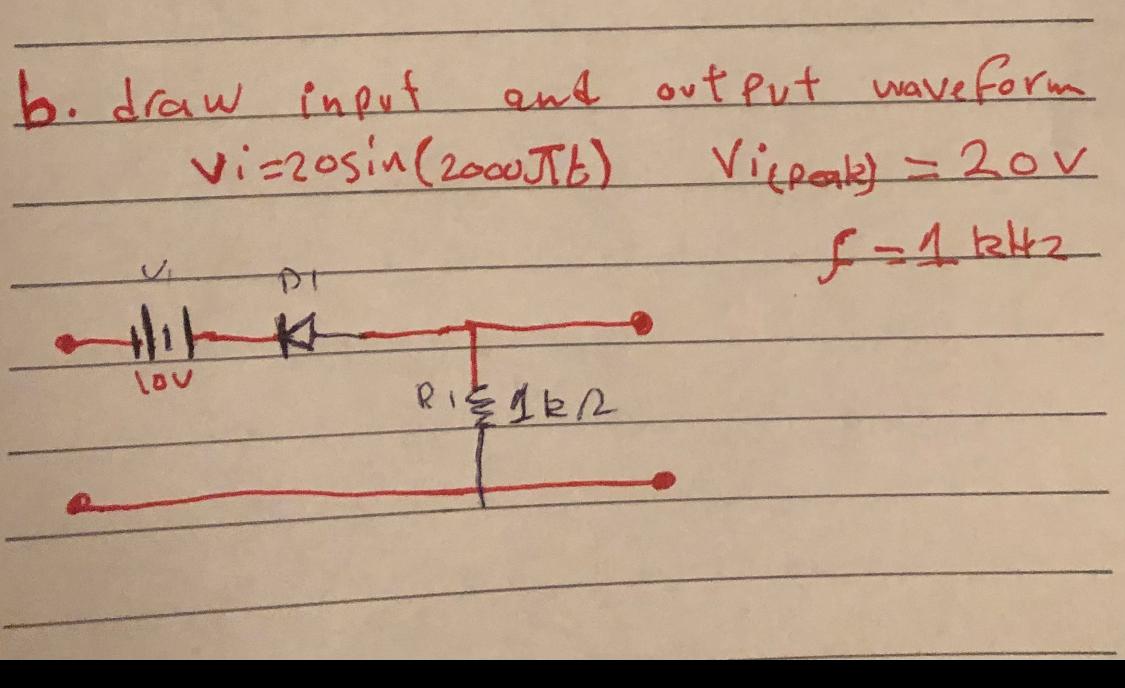 b. draw input and output waveform
Vi=20sin(2000πt) Vi(peak) = 20V
f = 1 kHz
V1 D1
10V
R1 1kΩ